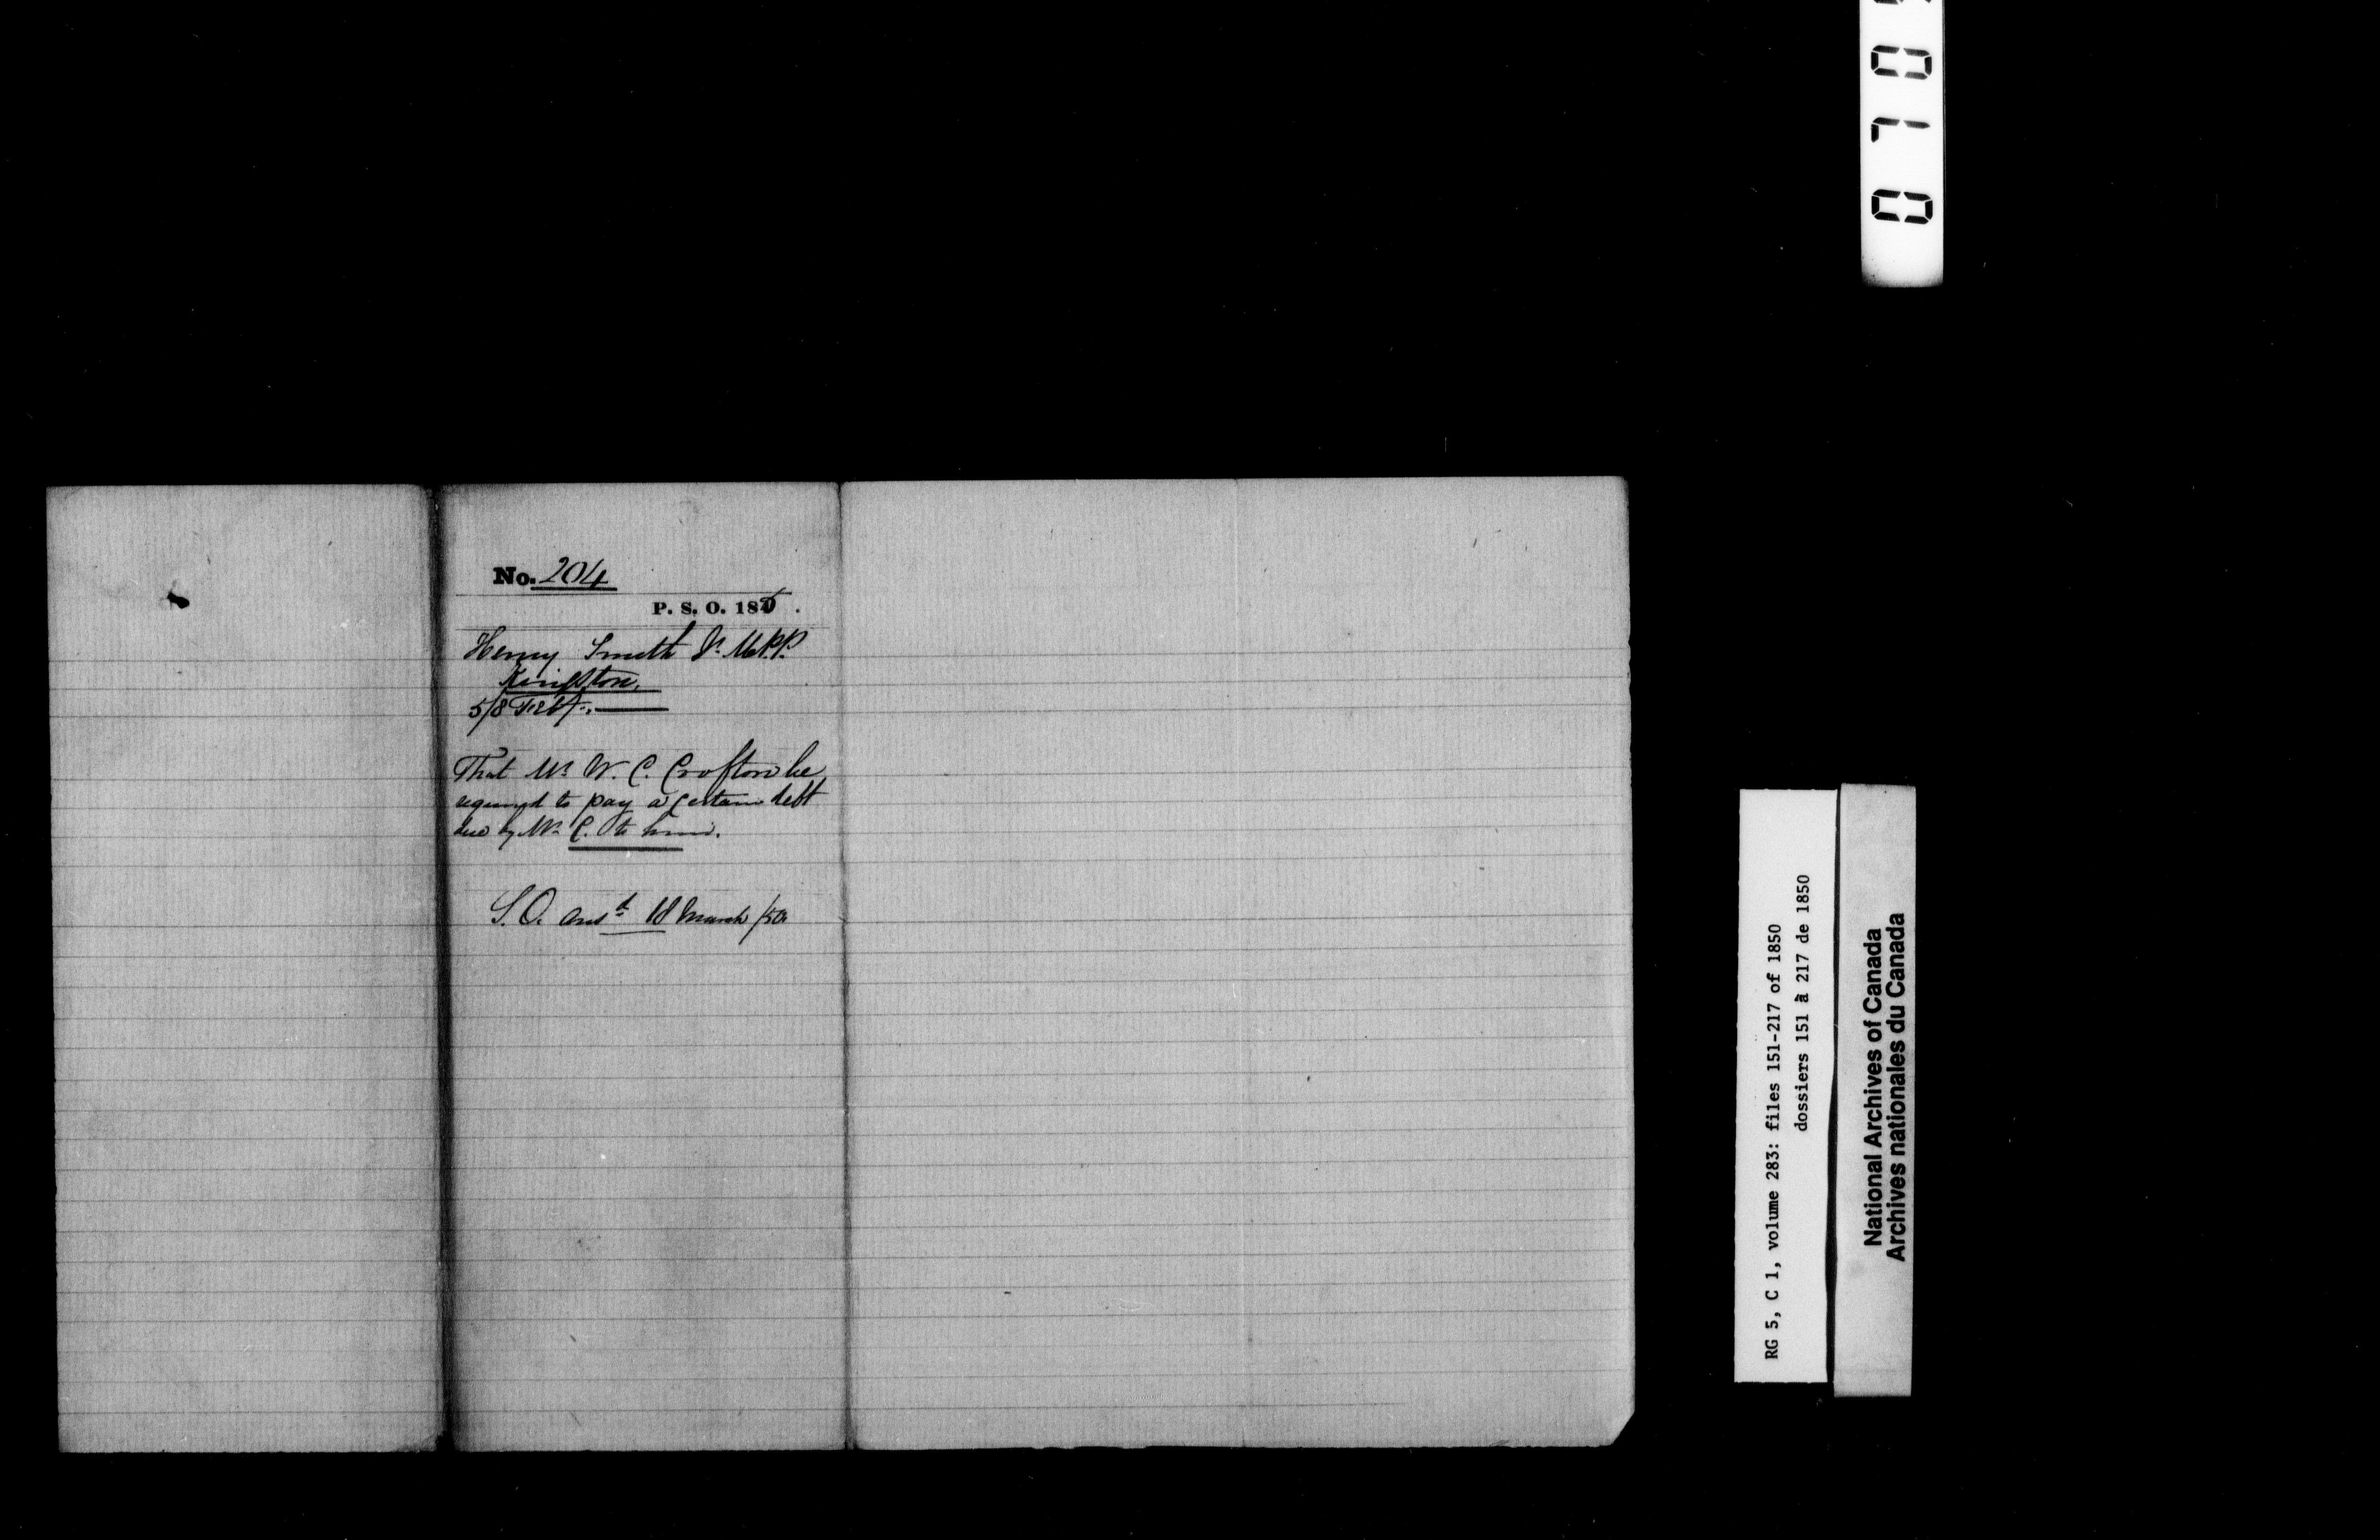 No. 204
P. S. O. 1850.
Henry Smith Jr. M.P.P.
Kingston,
5/8 Feby.
That Mr W. C. Crofton be
required to pay a certain debt
due by Mr C. to him.
S.O. ansd 18 March /50
RG 5, C 1, volume 283: files 151-217 of 1850
dossiers 151 à 217 de 1850
National Archives of Canada
Archives nationales du Canada
070